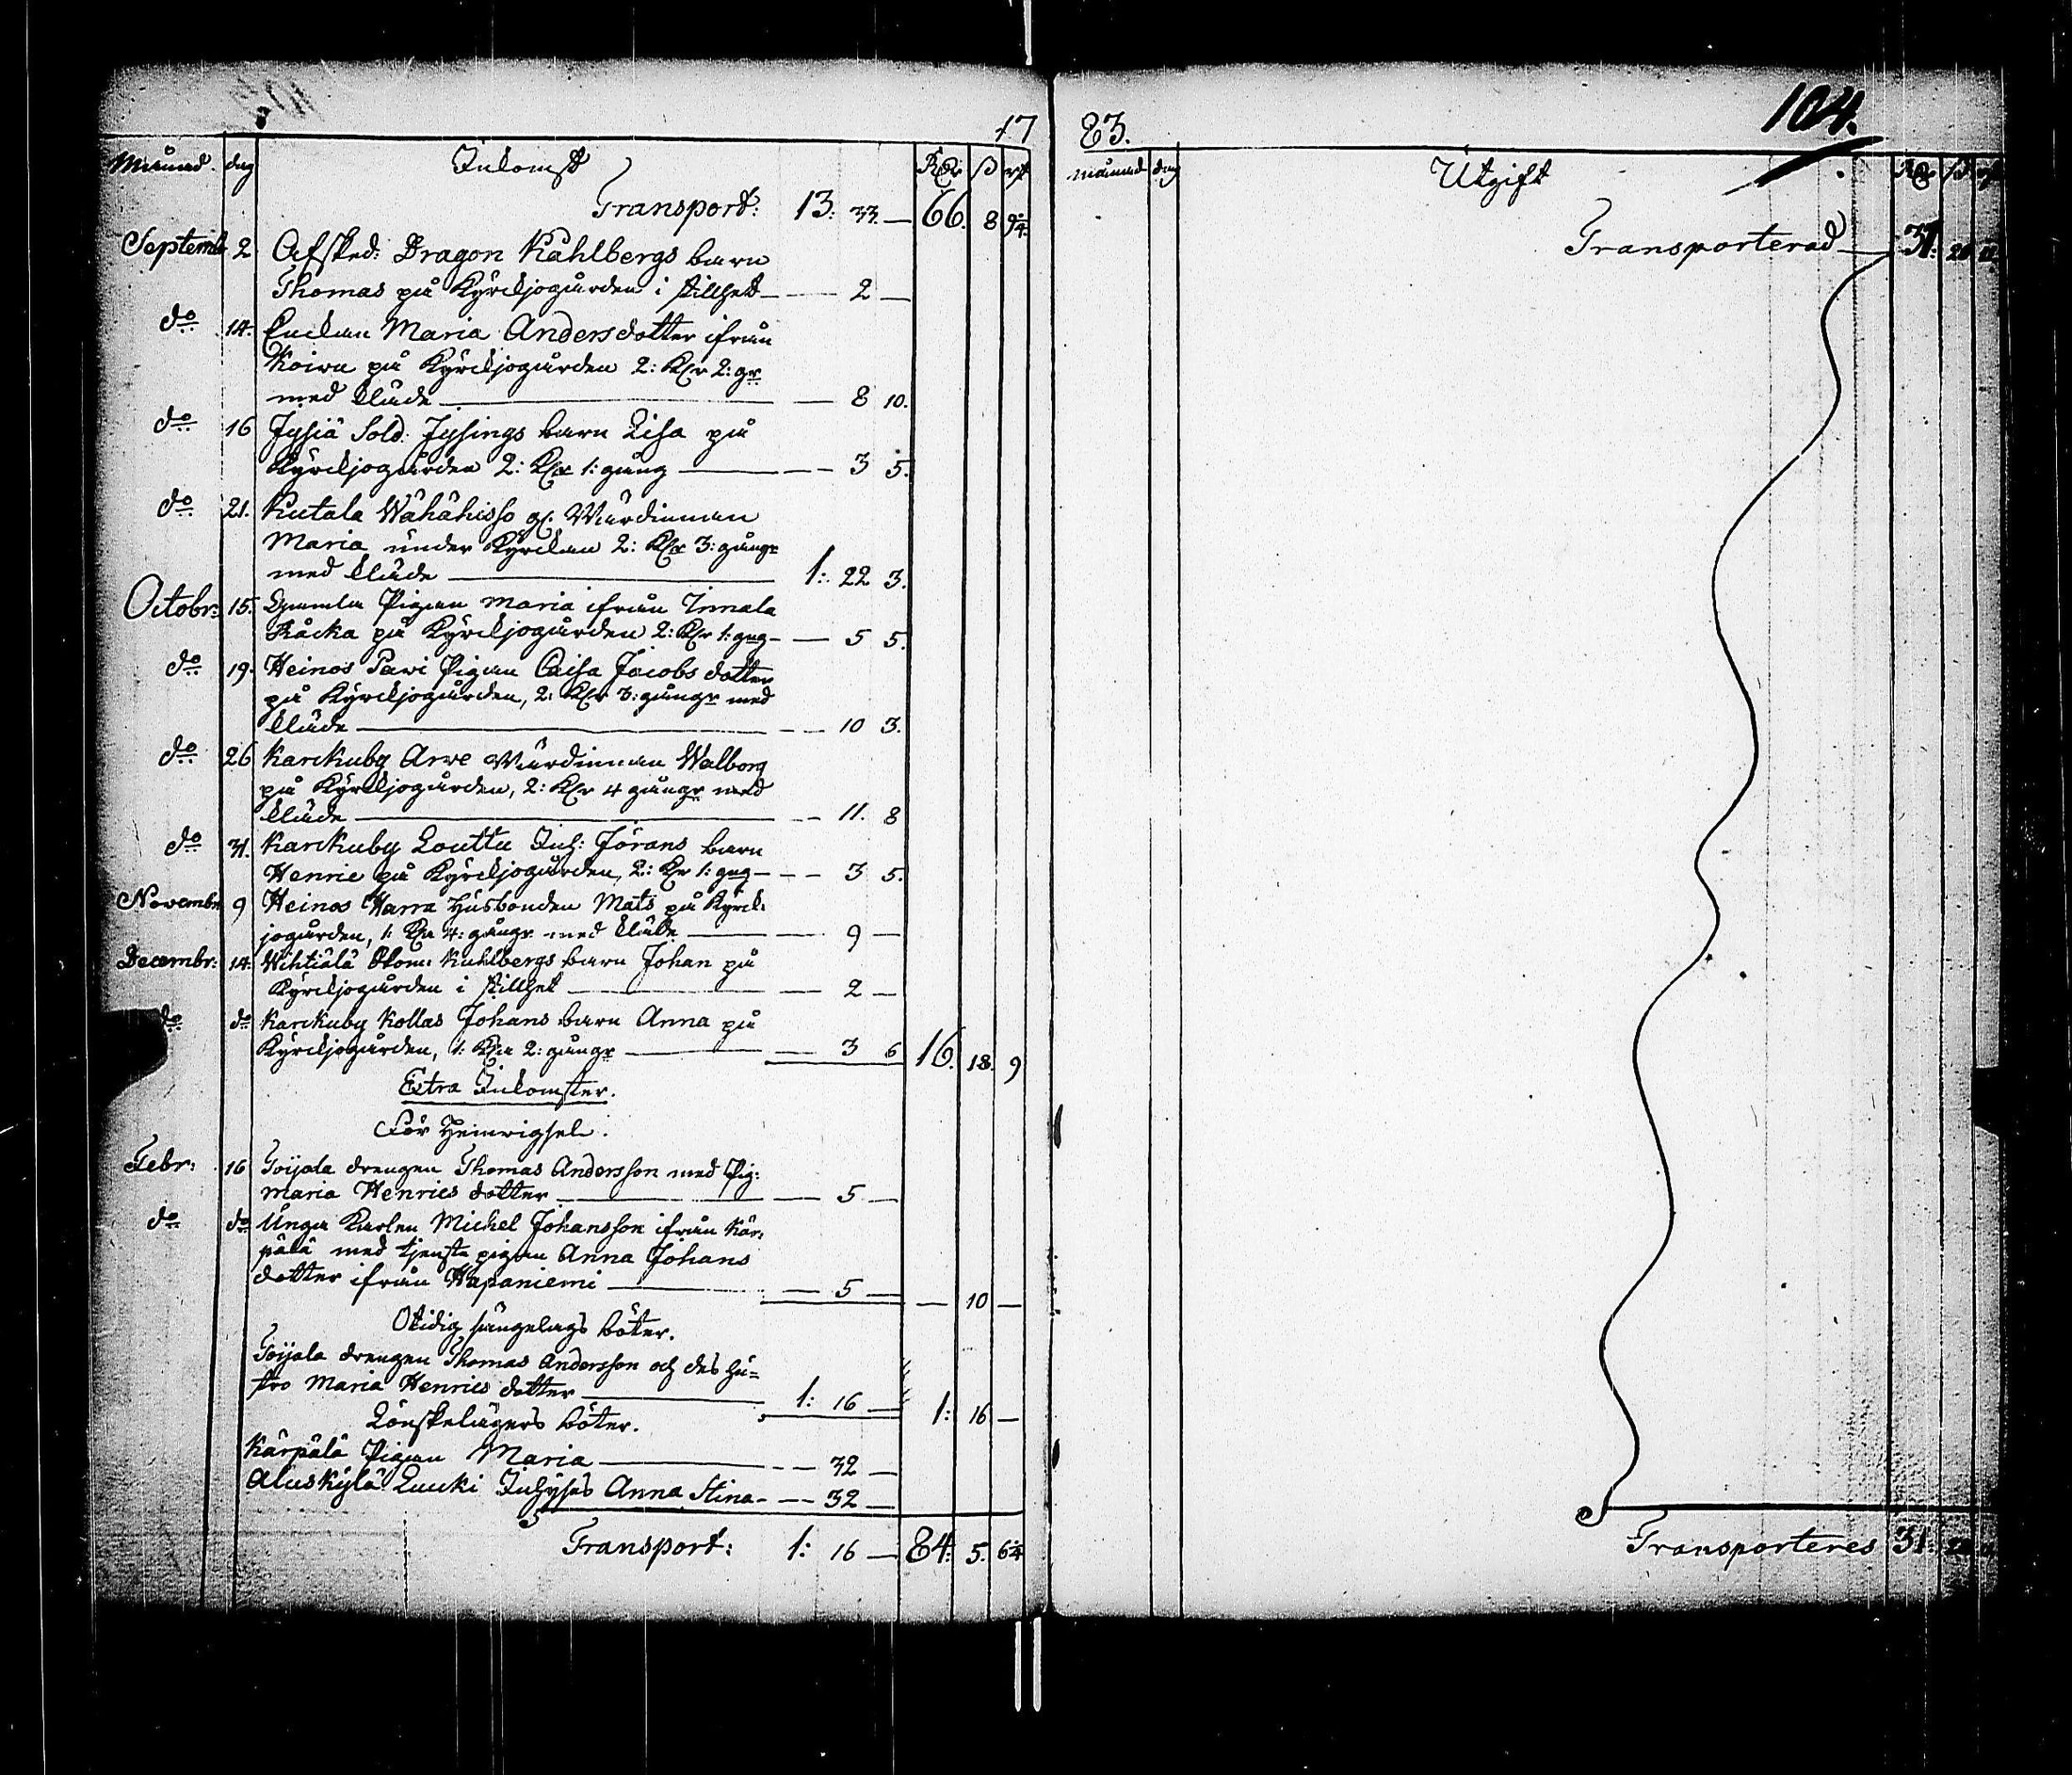 17
Månad. dag Inkomst Rdr ß rst
Transport: 13: 33. — 66. 8 9 2/4.
Septemb 2 Afsked: Dragon Kåhlbergs barn
Thomas på Kyrckjogården i stillhet — 2 —
do 14. Enckan Maria Andersdotter ifrån
Koivu på Kyrckjogården 2: Kr 2: gr
med kläde — 8 10.
do 16 Jysiä Sold. Jysings barn Lisa på
Kyrckjogården 2: Kr 1: gång — 3 5.
do 21. Kutala Wähähiso gl. Wärdinnan
Maria under Kyrckan 2: Kr 3: gångr
med kläde — 1: 22 3.
Octobr: 15. Gamla Pigan Maria ifrån Innala
Råcka på Kyrckjogården 2: Kr 1: gng — 5 5.
do 19. Heinos Pavi Pigan Caisa Jacobs dotter
på Kyrckjogården, 2: Kr 3: gångr med
kläde — 10 3.
do 26 Karckuby Arve Wärdinnan Walborg
på Kyrckjogården, 2: Kr 4 gångr med
kläde — 11. 8
do 31. Karckuby Louttu Inh: Jörans barn
Henric på Kyrckjogården, 2: Kr 1: gng — 3 5.
Novembr 9 Heinos Harra Husbonden Mats på Kyrck-
jogården, 1: Kr 4: gångr med kläde — 9 —
Decembr: 14. Wihtiälä Kuhlbergs barn Johan på
Kyrckjogården i stillhet — 2 —
do do Karckuby Kollas Johans barn Anna på
Kyrckjogården, 1: Kr 2: gångr — 3 6 16. 18. 9
Extra Inkomster.
För Hemvigsel.
Febr: 16 Goijala drengen Thomas Andersson med Pig:
Maria Henrics dotter — 5 —
do do Unga Karlen Michel Johansson ifrån Kär-
pälä med tjenste pigan Anna Johans
dotter ifrån Hapaniemi — 5 — — 10 —
Otidig sängelags böter.
Goijala drengen Thomas Andersson och des hu=
stro Maria Henrics dotter — 1: 16 — 1: 16 —
Lönskelägers böter.
Kärpälä Pigan Maria — 32 —
Aluskylä Luuki Inhyses Anna Stina — 32 —
Transport: 1: 16 — 84: 5. 6 2/4
83.
104.
månad dag Utgift Rdr ß rst
Transporterad — 31:
Transporteres 31: